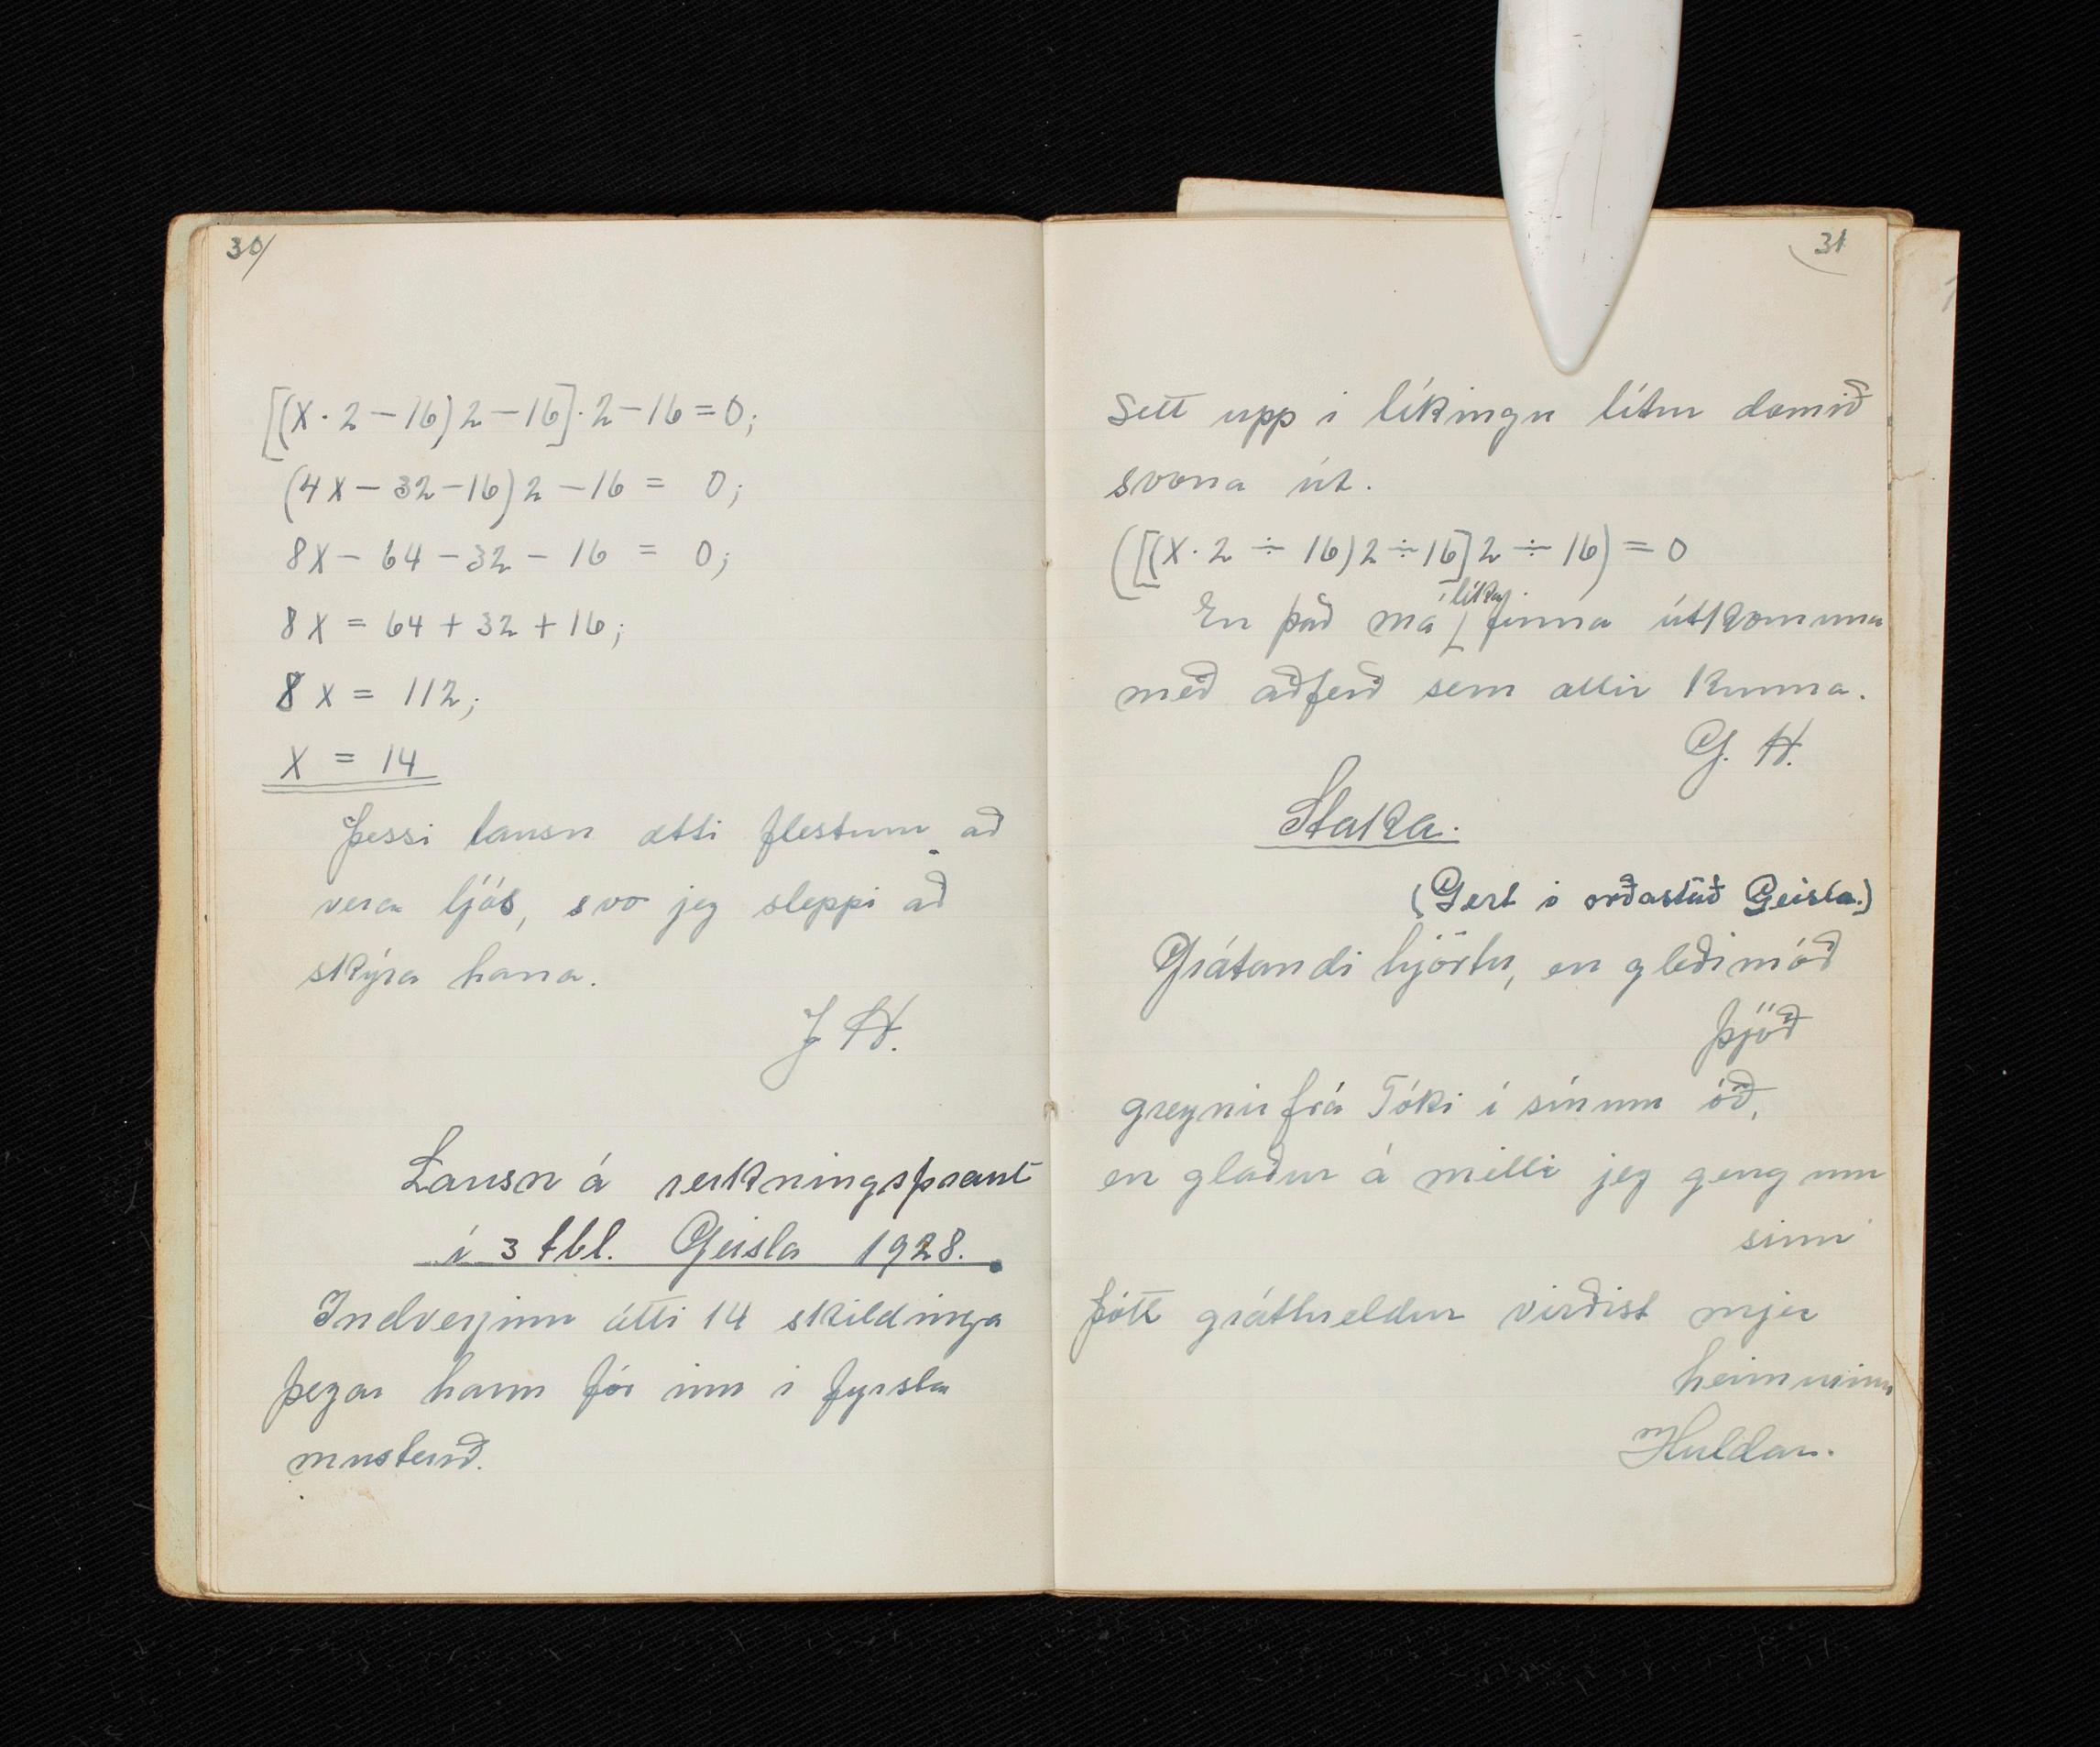 30/
[(x · 2 – 16) 2 – 16] · 2 – 16 = 0;
(4x – 32 – 16) 2 – 16 = 0;
8x – 64 – 32 – 16 = 0;
8x = 64 + 32 + 16;
8x = 112;
x = 14
Þessi lausn ætti flestum að
vera ljós, svo jeg sleppi að
skýra hana.
J H.
Lausn á reikningsþraut
í 3 tbl. Geisla 1928.
Indverjinn átti 14 skildinga
þegar hann fór inn í fyrsta
musterið.
31
Sett upp i líkingu lítur dæmið
svona út.
([(x · 2 ÷ 16) 2 ÷ 16] 2 ÷ 16) = 0
En það má líka finna útkomuna
með aðferð sem allir kunna.
G. H.
Staka.
(Gert i orðastað Geisla.)
Grátandi hjörtu, en gleðimóð
þjóð
greynir frá Tóki í sínum óð,
en glaður á milli jeg geng um
sinn
þótt gráthreldur virðist mjer
heimurinn
Huldar.